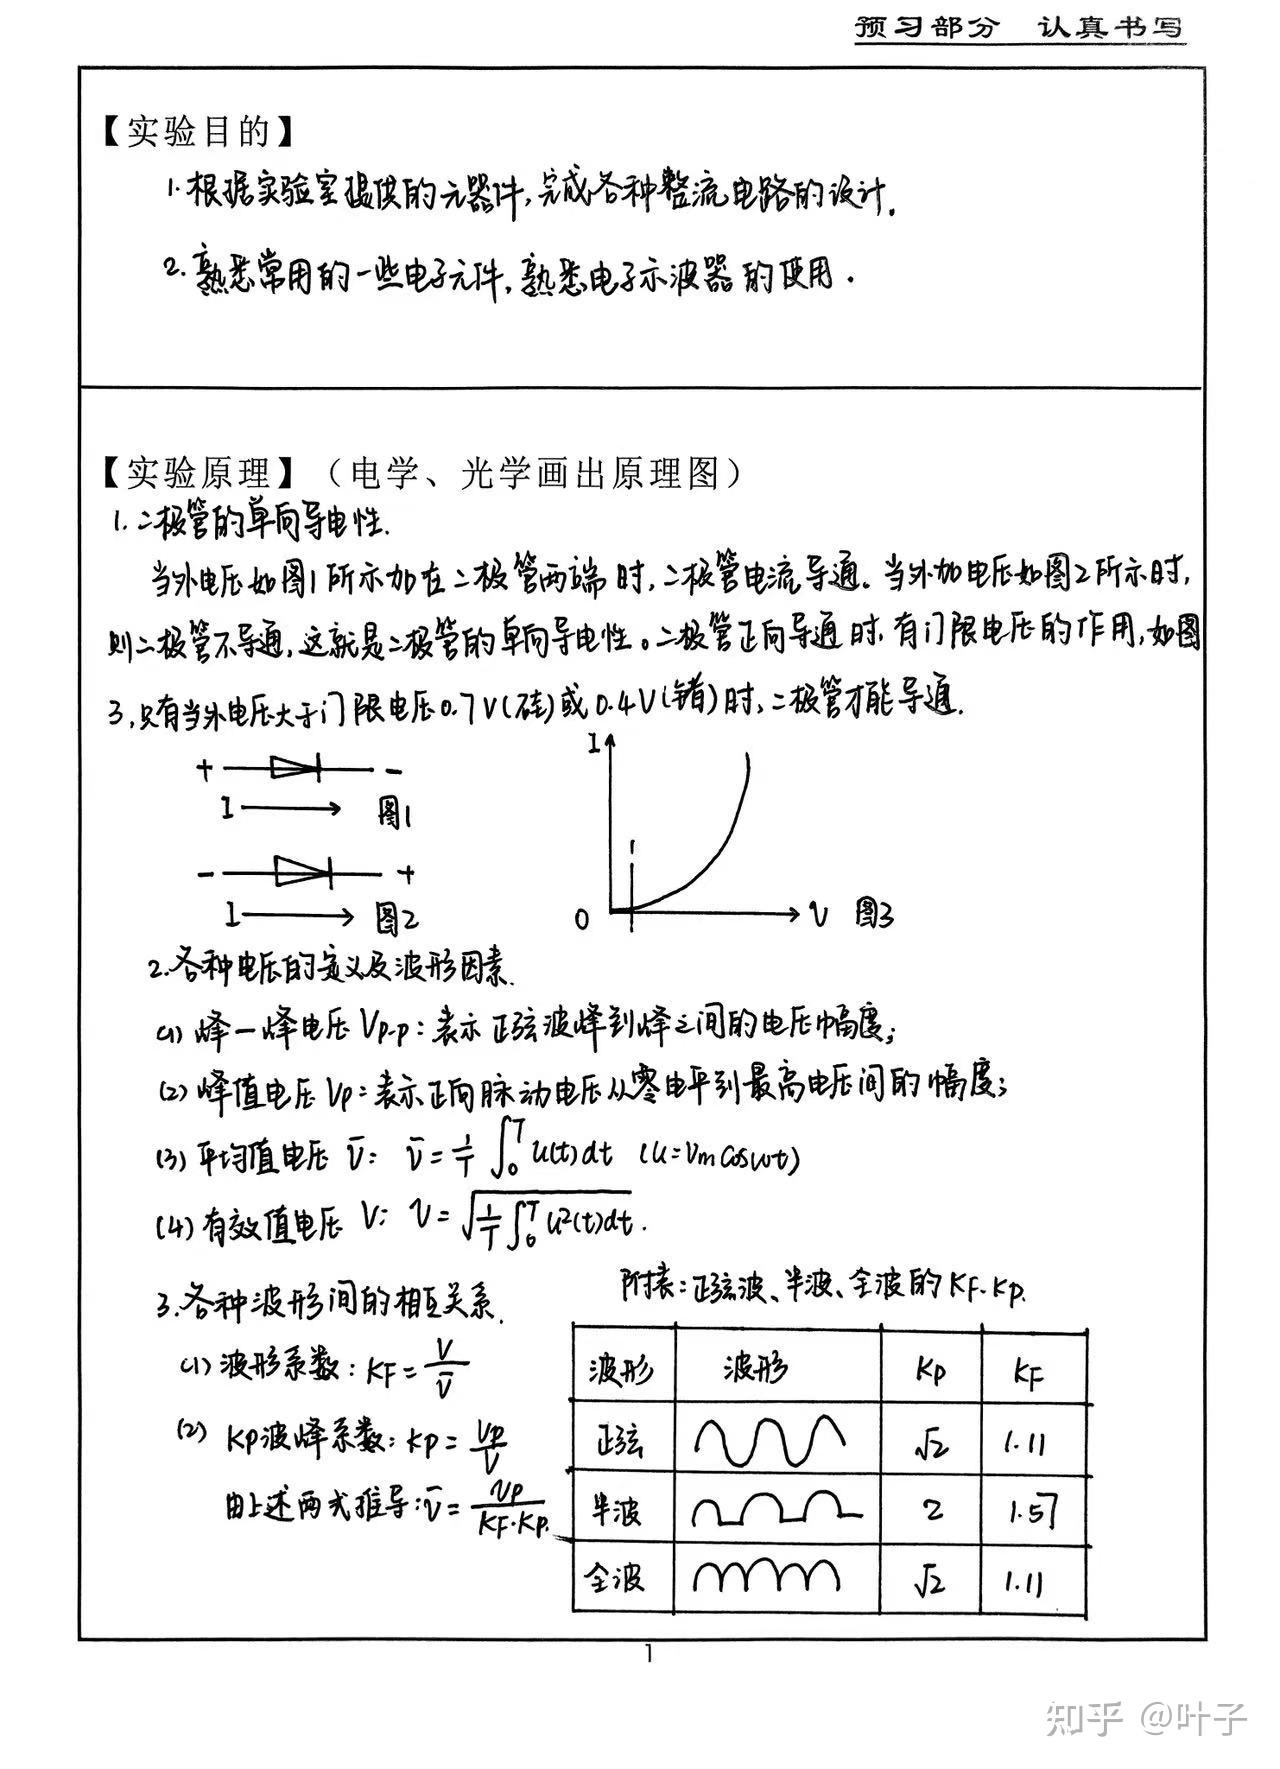 预习部分 认真书写
【实验目的】
1.根据实验室提供的元器件,完成各种整流电路的设计.
2.熟悉常用的一些电子元件,熟悉电子示波器的使用.
【实验原理】（电学、光学画出原理图）
1.二极管的单向导电性.
当外电压如图1所示加在二极管两端时,二极管电流导通。当外加电压如图2所示时,
则二极管不导通,这就是二极管的单向导电性。二极管正向导通时,有门限电压的作用,如图
3,只有当外电压大于门限电压0.7V(硅)或0.4V(锗)时,二极管才能导通.
+ -
I 图1
- +
I 图2
I
O V 图3
2.各种电压的定义及波形因素.
(1) 峰一峰电压 Vp-p: 表示正弦波峰到峰之间的电压幅度;
(2) 峰值电压 Vp: 表示正向脉动电压从零电平到最高电压间的幅度;
(3) 平均值电压 V̄: V̄=1/T ∫₀ᵀ u(t)dt (u=Vmcosωt)
(4) 有效值电压 V: V=√(1/T ∫₀ᵀ u²(t)dt).
3.各种波形间的相互关系.
(1) 波形系数: KF=V/V̄
(2) Kp波峰系数: Kp=Vp/V
由上述两式推导: V̄=Vp/KF·Kp.
附表:正弦波、半波、全波的KF.Kp.
波形 波形 Kp KF
正弦 √2 1.11
半波 2 1.57
全波 √2 1.11
1
知乎 @叶子